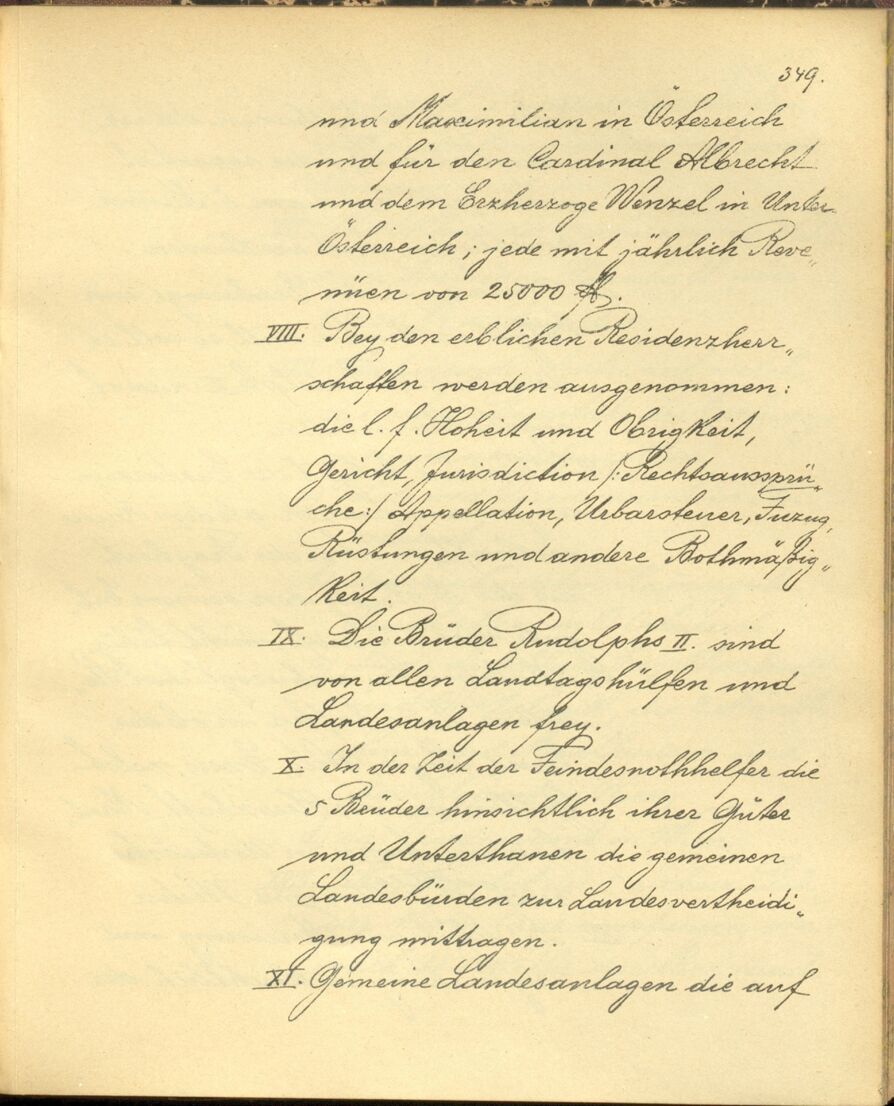 349.
und Maximilian in Österreich
und für den Cardinal Albrecht
und dem Erzherzoge Wenzel in Unter-
Österreich; jede mit jährlich Reve„
nüen von 25000 fl.
VIII. Bey den erblichen Residenzherr„
schaften werden ausgenommen:
die l. f. Hoheit und Obrigkeit,
Gericht, Jurisdiction /: Rechtsaussprü„
che :/ Appellation, Urbarsteuer, Zuzug,
Rüstungen und andere Bothmäßig„
keit.
IX. Die Brüder Rudolphs II. sind
von allen Landtagshülfen und
Landesanlagen frey.
X. In der Zeit der Feindesnothhelfer die
5 Beüder hinsichtlich ihrer Güter
und Unterthanen die gemeinen
Landesbürden zur Landesvertheidi„
gung mittragen.
XI. Gemeine Landesanlagen die auf